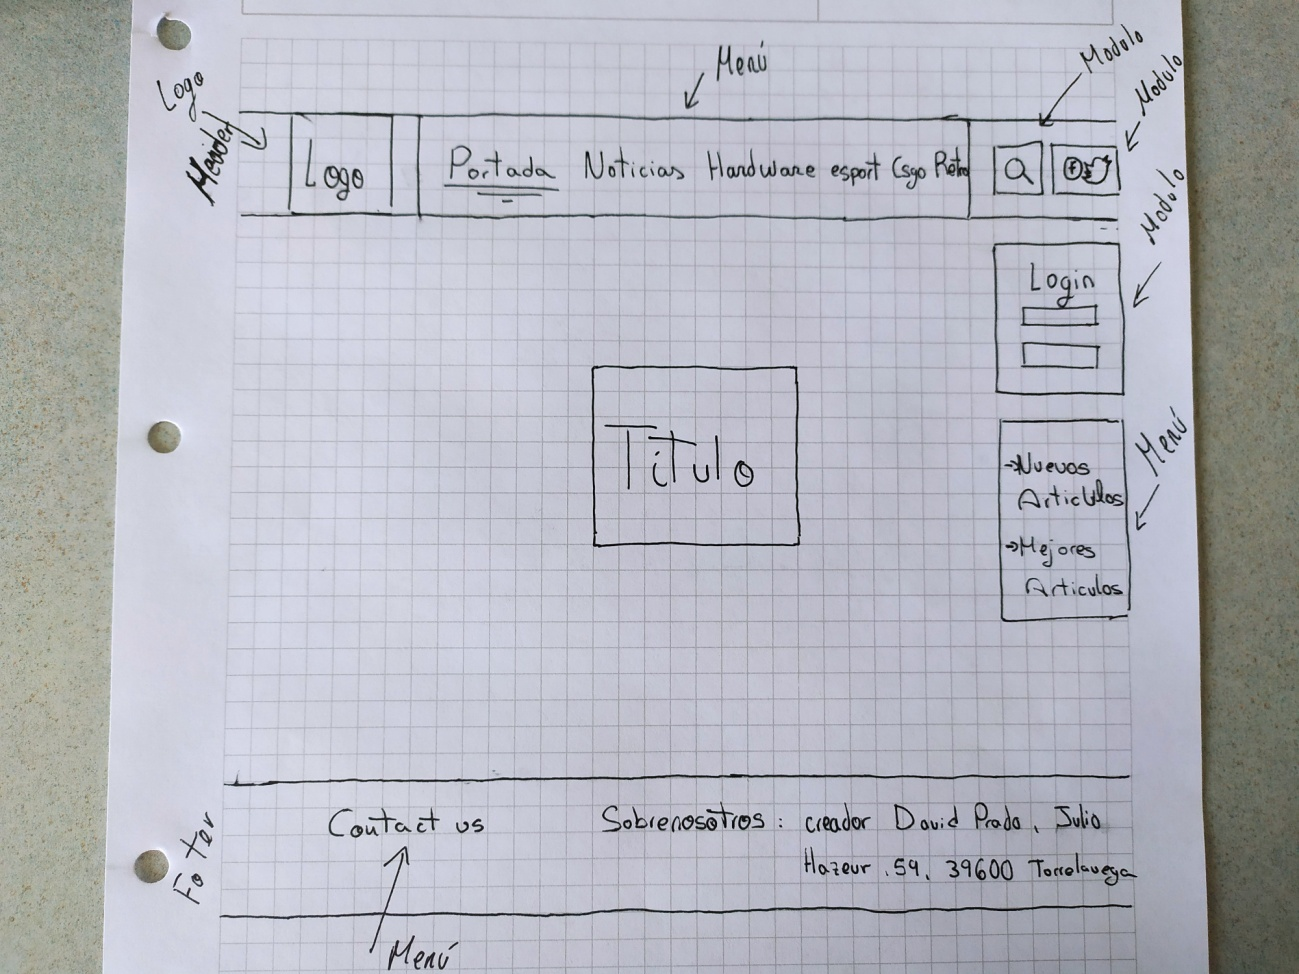 Menú
Modulo
Modulo
Logo
Header
Logo
Portada Noticias Hardware esport Csgo Retro
Modulo
Login
Titulo
Menú
→Nuevos
Articulos
→Mejores
Articulos
Footer
Contact us
Sobrenosotros: creador David Prado, Julio
Hazeur .59, 39600 Torrelavega
Menú